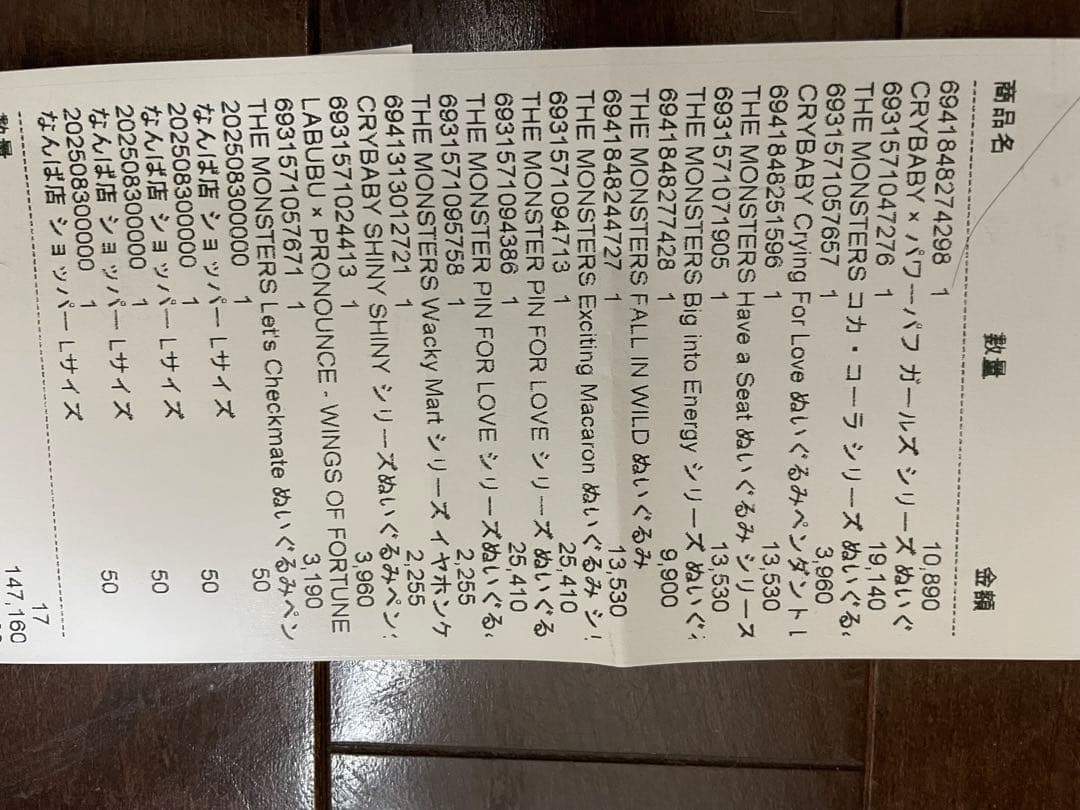 商品名 数量 金額
6941848274298 1 10,890
CRYBABY × パワーパフ ガールズ シリーズ ぬいぐ
6931571047276 1 19,140
THE MONSTERS コカ・コーラ シリーズ ぬいぐる
6931571057657 1 3,960
CRYBABY Crying For Love ぬいぐるみペンダントL
6941848251596 1 13,530
THE MONSTERS Have a Seat ぬいぐるみ シリーズ
6931571071905 1 13,530
THE MONSTERS Big into Energy シリーズ ぬいぐ
6941848277428 1 9,900
THE MONSTERS FALL IN WILD ぬいぐるみ
6941848244727 1 13,530
THE MONSTERS Exciting Macaron ぬいぐるみ シ
6931571094713 1 25,410
THE MONSTER PIN FOR LOVE シリーズ ぬいぐる
6931571094386 1 25,410
THE MONSTER PIN FOR LOVE シリーズぬいぐる
6931571095758 1 2,255
THE MONSTERS Wacky Mart シリーズ イヤホンケ
6941313012721 1 2,255
CRYBABY SHINY SHINY シリーズぬいぐるみペン
6931571024413 1 3,960
LABUBU × PRONOUNCE - WINGS OF FORTUNE
6931571057671 1 3,190
THE MONSTERS Let's Checkmate ぬいぐるみペン
202508300000 1 50
なんば店 ショッパー Lサイズ
202508300000 1 50
なんば店 ショッパー Lサイズ
202508300000 1 50
なんば店 ショッパー Lサイズ
202508300000 1 50
なんば店 ショッパー Lサイズ
17
147,160